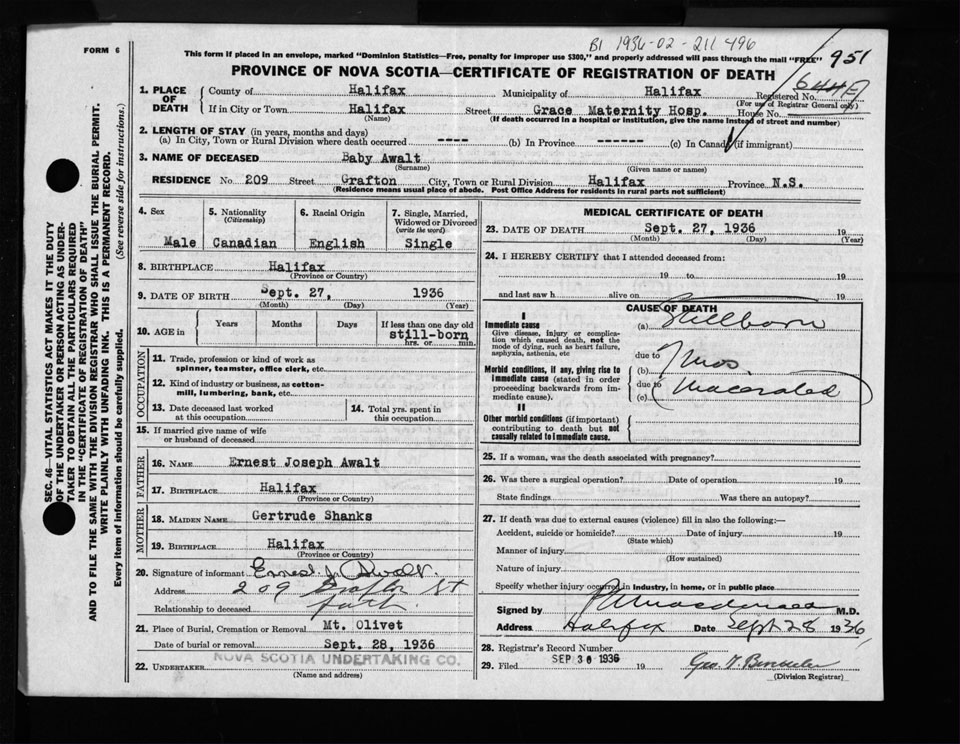 B1 1936-02-211496
FORM 6
This form if placed in an envelope, marked "Dominion Statistics—Free, penalty for improper use $300," and properly addressed will pass through the mail "FREE"
951
PROVINCE OF NOVA SCOTIA—CERTIFICATE OF REGISTRATION OF DEATH
1. PLACE OF DEATH
County of Halifax Municipality of Halifax Registered No.
(For use of Registrar General only)
If in City or Town Halifax Street Grace Maternity Hosp. House No.
(Name) (If death occurred in a hospital or institution, give the name instead of street and number)
2. LENGTH OF STAY (in years, months and days)
(a) In City, Town or Rural Division where death occurred ---- (b) In Province ------ (c) In Canada (if immigrant)
3. NAME OF DECEASED Baby Awalt
(Surname) (Given name or names)
RESIDENCE No. 209 Street Grafton City, Town or Rural Division Halifax Province N.S.
(Residence means usual place of abode. Post Office Address for residents in rural parts not sufficient)
4. Sex 5. Nationality 6. Racial Origin 7. Single, Married,
(Citizenship) Widowed or Divorced
(write the word)
Male Canadian English Single
8. BIRTHPLACE Halifax
(Province or Country)
9. DATE OF BIRTH Sept. 27, 1936
(Month) (Day) (Year)
10. AGE in Years Months Days If less than one day old
still-born
hrs. or min.
OCCUPATION
11. Trade, profession or kind of work as
spinner, teamster, office clerk, etc.
12. Kind of industry or business, as cotton-
mill, lumbering, bank, etc.
13. Date deceased last worked
at this occupation
14. Total yrs. spent in
this occupation
15. If married give name of wife
or husband of deceased
FATHER
16. NAME Ernest Joseph Awalt
17. BIRTHPLACE Halifax
(Province or Country)
MOTHER
18. MAIDEN NAME Gertrude Shanks
19. BIRTHPLACE Halifax
(Province or Country)
20. Signature of informant Ernest J. Awalt.
Address 209 Grafton St
Relationship to deceased fath.
21. Place of Burial, Cremation or Removal Mt. Olivet
Date of burial or removal Sept. 28, 1936
22. UNDERTAKER NOVA SCOTIA UNDERTAKING CO.
(Name and address)
MEDICAL CERTIFICATE OF DEATH
23. DATE OF DEATH Sept. 27, 1936 19
(Month) (Day) (Year)
24. I HEREBY CERTIFY that I attended deceased from:
19 to 19
and last saw h alive on 19
CAUSE OF DEATH
I
Immediate cause
Give disease, injury or complica-
tion which caused death, not the
mode of dying, such as heart failure,
asphyxia, asthenia, etc
(a) Stillborn
due to
Morbid conditions, if any, giving rise to
immediate cause (stated in order
proceeding backwards from im-
mediate cause).
(b) 7 mos.
due to
(c) Macerated
II
Other morbid conditions (if important)
contributing to death but not
causally related to immediate cause.
25. If a woman, was the death associated with pregnancy?
26. Was there a surgical operation? Date of operation 19
State findings Was there an autopsy?
27. If death was due to external causes (violence) fill in also the following:—
Accident, suicide or homicide? Date of injury 19
(State which)
Manner of injury
(How sustained)
Nature of injury
Specify whether injury occurred in industry, in home, or in public place
Signed by Macdonald M.D.
Address Halifax Date Sept 28 1936
28. Registrar's Record Number
29. Filed SEP 30 1936 19
(Division Registrar)
SEC. 46—VITAL STATISTICS ACT MAKES IT THE DUTY
OF THE UNDERTAKER OR PERSON ACTING AS UNDER-
TAKER TO OBTAIN ALL THE PARTICULARS REQUIRED
IN THE "CERTIFICATE OF REGISTRATION OF DEATH"
AND TO FILE THE SAME WITH THE DIVISION REGISTRAR WHO SHALL ISSUE THE BURIAL PERMIT.
WRITE PLAINLY WITH UNFADING INK. THIS IS A PERMANENT RECORD.
Every item of information should be carefully supplied. (See reverse side for instructions.)